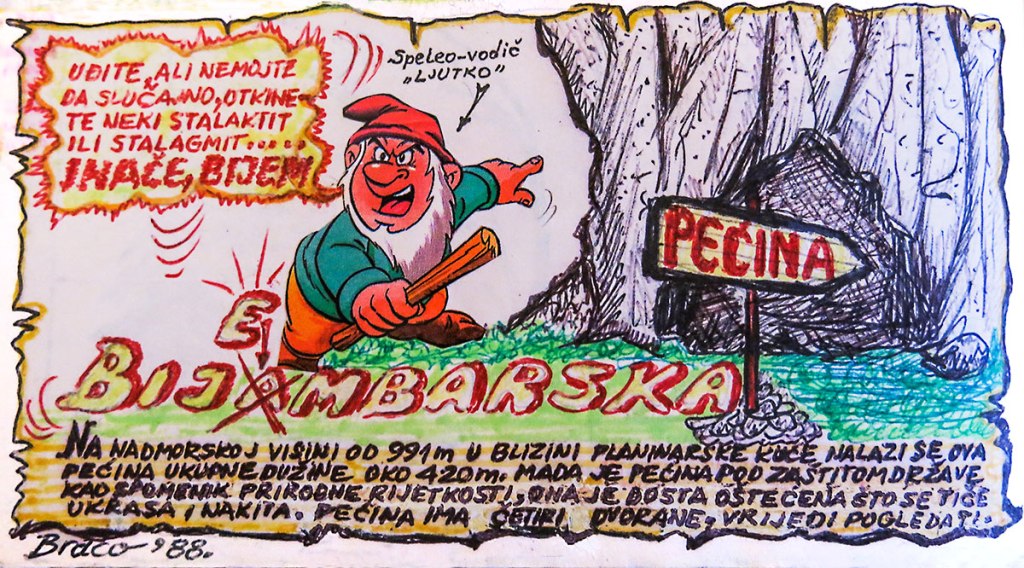 Speleo-vodič
"LJUTKO"
UĐITE, ALI NEMOJTE
DA SLUČAJNO, OTKINE-
TE NEKI STALAKTIT
ILI STALAGMIT.....
INAČE, BIJEM
PEĆINA
E
BIJAMBARSKA
NA NADMORSKOJ VISINI OD 991m U BLIZINI PLANINARSKE KUĆE, NALAZI SE OVA
PEĆINA UKUPNE DUŽINE OKO 420m. MADA JE PEĆINA POD ZAŠTITOM DRŽAVE
KAO SPOMENIK PRIRODNE RIJETKOSTI, ONA JE DOSTA OŠTEĆENA ŠTO SE TIČE
UKRASA I NAKITA. PEĆINA IMA ČETIRI DVORANE, VRIJEDI POGLEDATI.
Braco '88.